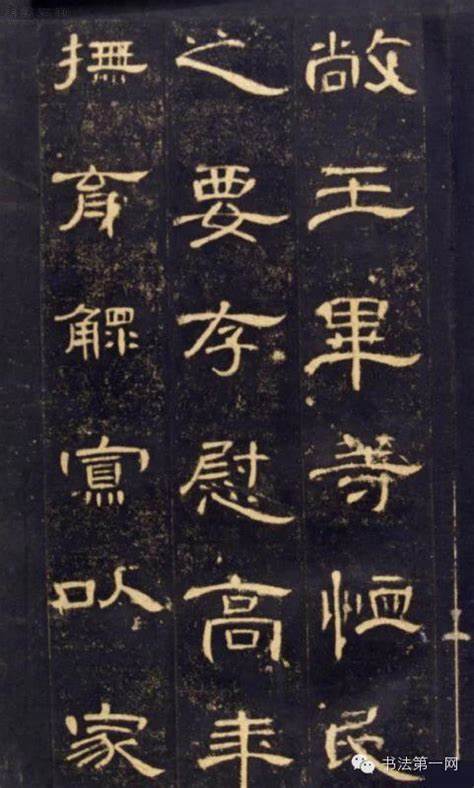 敞王畢等恤民
之要存慰高年
撫育鰥寡以家
书法第一网